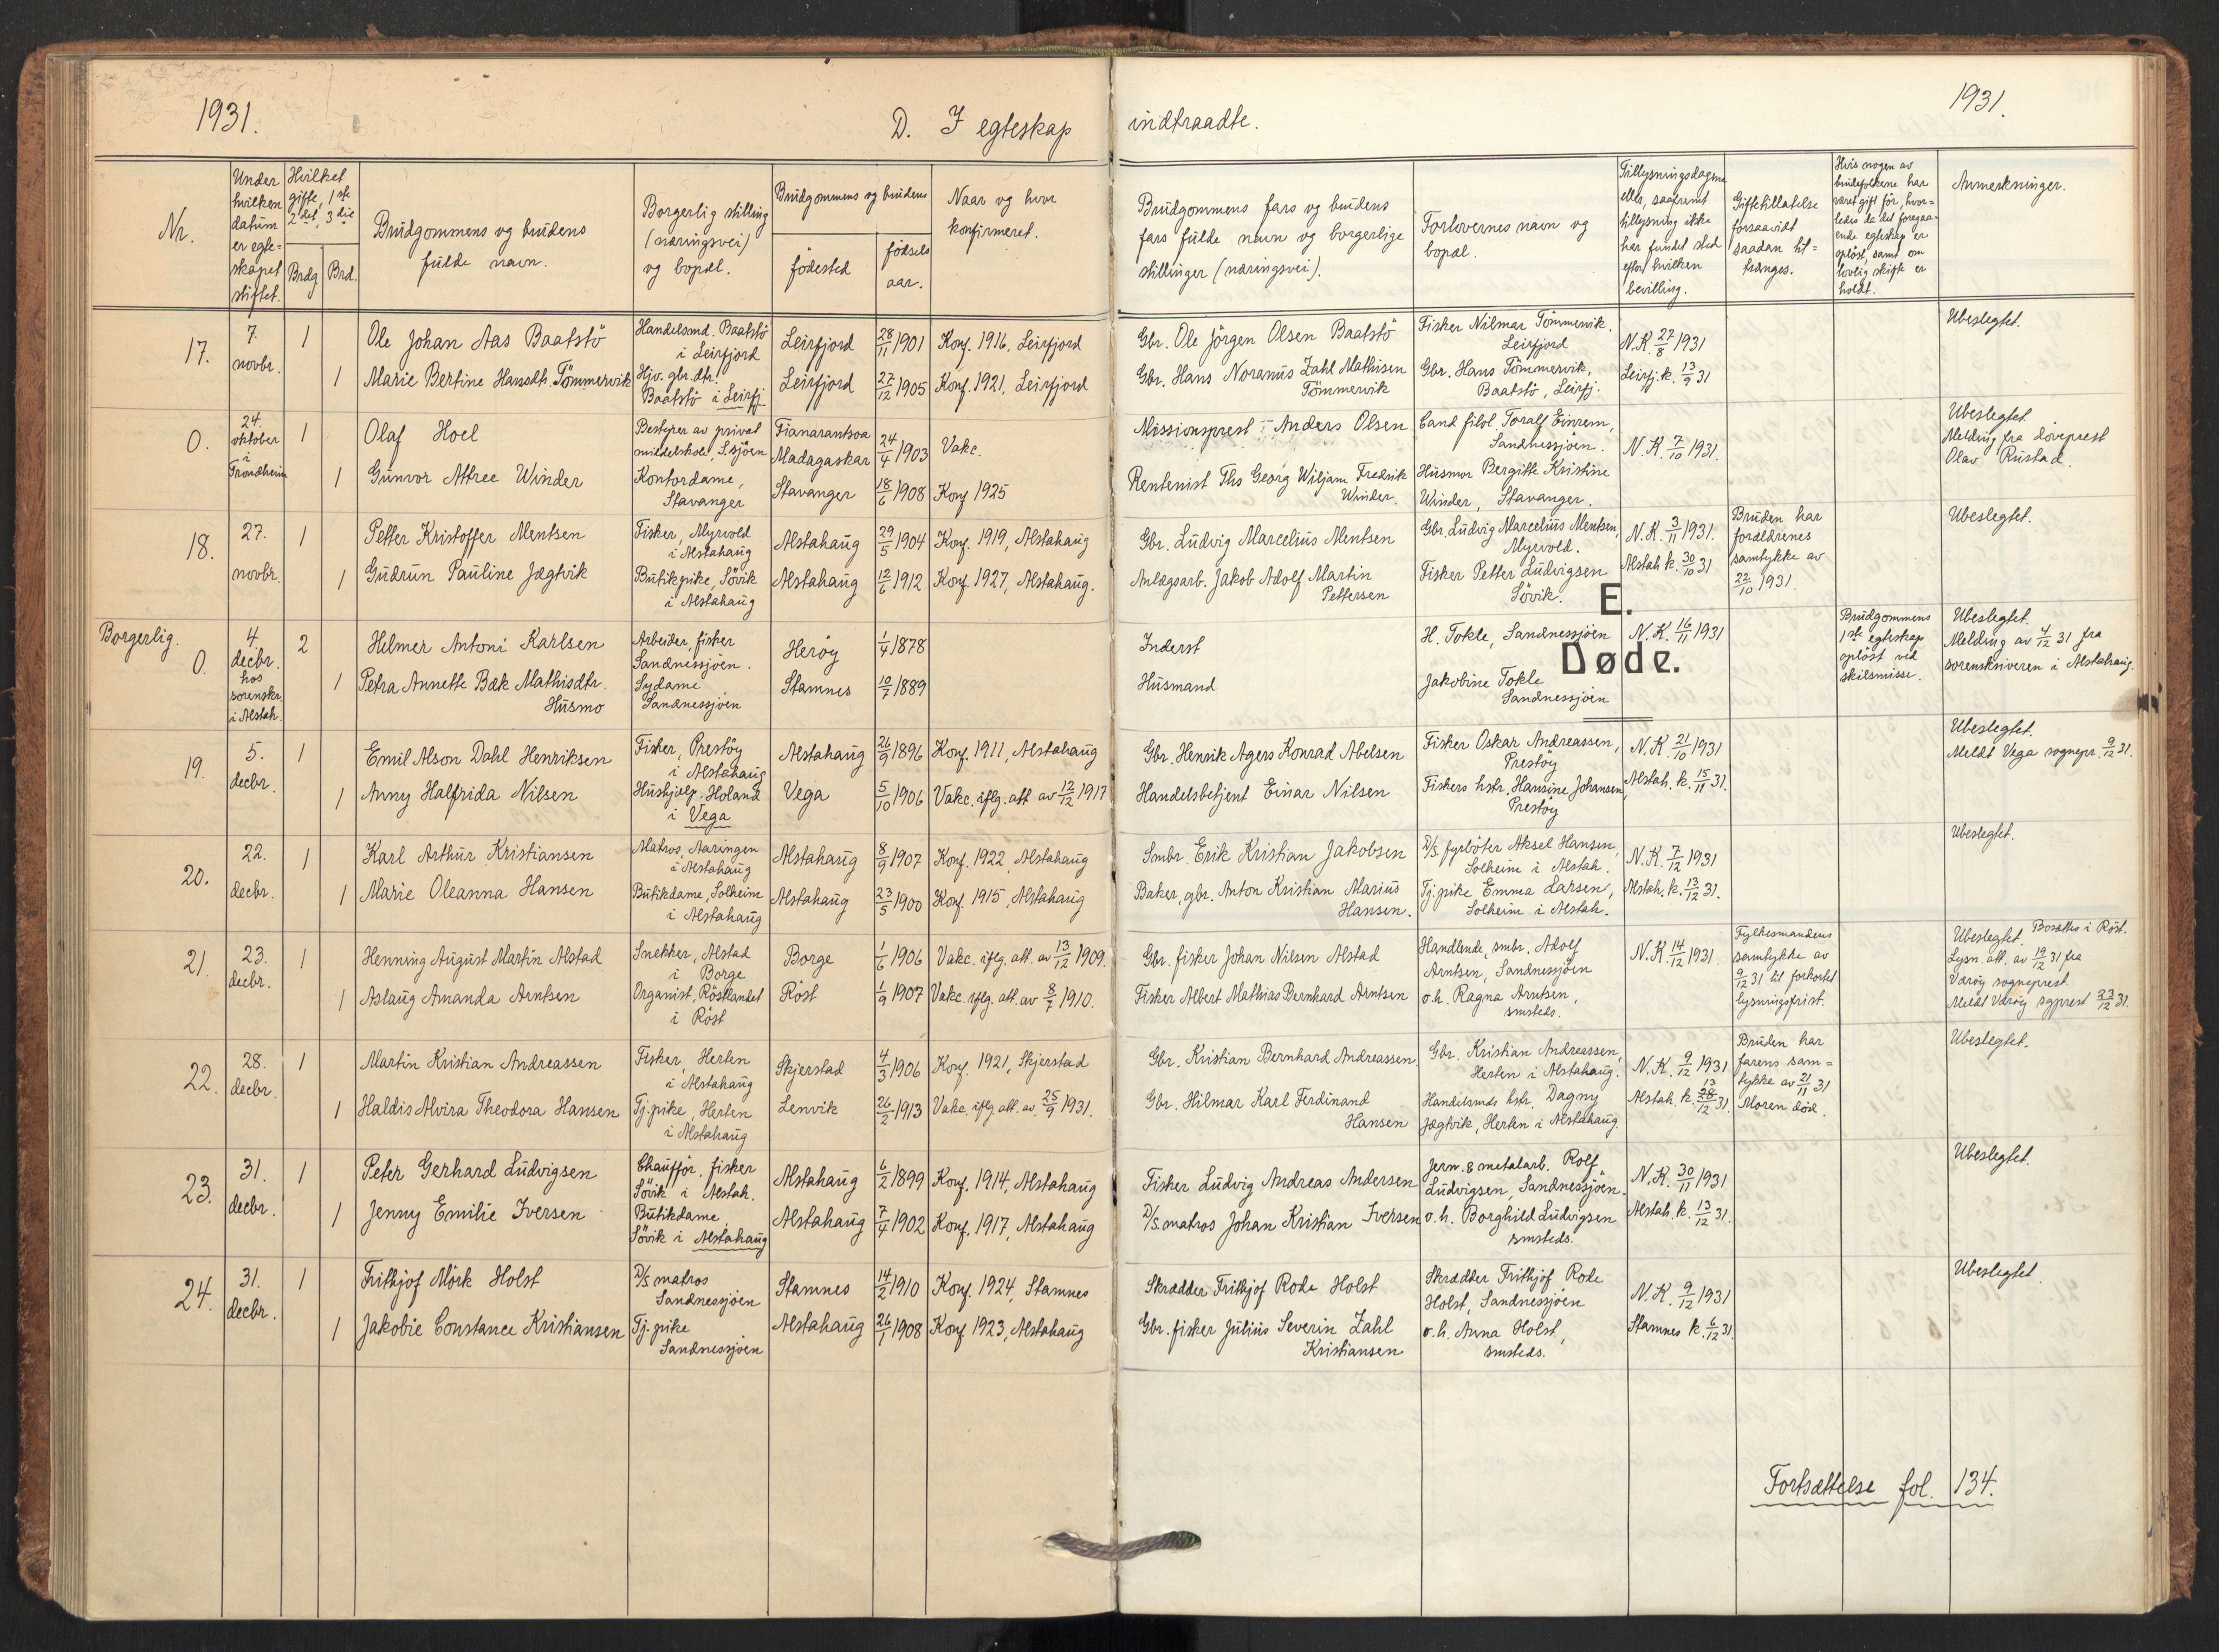 1931.
D. I egteskap
indtraadte.
1931.
Nr.
Under hvilken datum er egte=skapet stiftet.
Hvilket gifte, 1ste 2det, 3die
Brdg
Brd.
Brudgommens og brudens fulde navn.
Borgerlig stilling (næringsvei) og bopæl.
Brudgommens og brudens
fødested
fødsels aar.
Naar og hvor konfirmeret.
Brudgommens fars og brudens fars fulde navn og borgerlige stillinger (næringsvei).
Forlovernes navn og bopæl.
Tillysningsdagene eller, saafremt tillysning ikke har fundet sted efter hvilken bevilling.
Giftetilladelse forsaavidt saadan til=trænges.
Hvis nogen av brudefolkene har været gift før, hvor=ledes da det foregaa=ende egteskap er opløst, samt om lovlig skifte er holdt.
Anmerkninger.
17. 7. novbr. 1 Ole Johan Aas Baatstö Handelsmd. Baatstö i Leirfjord Leirfjord 28/11 1901 Konf. 1916, Leirfjord Gbr. Ole Jörgen Olsen Baatstö Fisker Nilmar Tömmervik. Leirfjord N.K. 27/8 1931 Ubeslegtet.
1 Marie Bertine Hansdtr. Tömmervik Hjv. gbr.dtr. Baatstö i Leirfj. Leirfjord 27/12 1905 Konf. 1921, Leirfjord Gbr. Hans Noranus Zahl Mathisen Tömmervik Gbr. Hans Tömmervik, Baatstö, Leirfj. Leirfj. k. 13/9 31
0. 24. oktober i Trondheim 1 Olaf Hoel Bestyrer av privat middelskole, S.sjöen Fianarantsoa Madagaskar 24/4 1903 Vakc. Missionsprest Anders Olsen Cand filol Toralf Einrem, Sandnessjöen. N.K. 7/10 1931. Ubeslegtet. Melding fra döveprest Olav Rustad.
1 Gunvor Attree Winder Kontordame, Stavanger Stavanger 18/6 1908 Konf 1925 Rentenist Ths Georg Wiljam Fredrik Winder. Husmor Bergitte Kristine Winder, Stavanger.
18. 27. novbr. 1 Petter Kristoffer Mentsen Fisker, Myrvold i Alstahaug Alstahaug 29/5 1904 Konf. 1919, Alstahaug Gbr. Ludvig Marcelius Mentsen Gbr. Ludvig Marcelius Mentsen, Myrvold. N.K. 3/11 1931. Bruden har forældrenes samtykke av 22/10 1931. Ubeslegtet.
1 Gudrun Pauline Jægtvik Butikpike, Sövik i Alstahaug Alstahaug 12/6 1912 Konf. 1927, Alstahaug. Anlægsarb. Jakob Adolf Martin Pettersen Fisker Petter Ludvigsen Sövik. Alstah k. 30/10 31
E.
Døde.
Borgerlig.
0. 4. decbr. hos sorenskr. i Alstah. 2 Helmer Antoni Karlsen Arbeider, fisker Sandnessjöen. Heröy 1/4 1878 Inderst H. Tokle, Sandnessjöen N.K. 16/11 1931 Brudgommens 1ste egteskap oplöst ved skilsmisse. Ubeslegtet. Melding av 4/12 31 fra sorenskriveren i Alstahaug.
1 Petra Annette Bæk Mathisdtr. Husmo Sydame Sandnessjöen Stamnes 10/7 1889 Husmand Jakobine Tokle Sandnessjöen
19. 5. decbr. 1 Emil Alson Dahl Henriksen Fisker, Prestöy i Alstahaug Alstahaug 26/9 1896 Konf. 1911, Alstahaug Gbr. Henrik Agers Konrad Abelsen Fisker Oskar Andreassen, Prestöy N.K. 21/10 1931 Ubeslegtet. Meldt Vega sognepr. 9/12 31.
1 Anny Halfrida Nilsen Hushjelp. Holand i Vega Vega 5/10 1906 Vakc. iflg. att av 12/12 1917 Handelsbetjent Einar Nilsen Fiskers hstr. Hansine Johansen, Prestöy Alstah. k. 15/11 31.
20. 22. decbr. 1 Karl Arthur Kristiansen Matros, Aaringen i Alstahaug Alstahaug 8/9 1907 Konf. 1922, Alstahaug Smbr. Erik Kristian Jakobsen D/S. fyrböter Aksel Hansen, Solheim i Alstah. N.K. 7/12 1931 Ubeslegtet.
1 Marie Oleanna Hansen Butikdame, Solheim i Alstahaug Alstahaug 23/5 1900 Konf. 1915, Alstahaug Baker, gbr. Anton Kristian Marius Hansen. Tj.pike Emma Larsen, Solheim i Alstah. Alstah. k. 13/12 31.
21. 23. decbr. 1 Henning August Martin Alstad Snekker, Alstad i Borge Borge 1/6 1906 Vakc. iflg. att. av 13/12 1909. Gbr. fisker Johan Nilsen Alstad Handlende, smbr. Adolf Arntsen, Sandnessjöen N.K. 14/12 1931. Fylkesmandens samtykke av 9/12 31 til forkortet lysningsfrist. Ubeslegtet. Bosættes i Röst. Lysn. att. av 19/12 31 fra Værøy sogneprest. Meldt Værøy sgprest 23/12 31.
1 Aslaug Amanda Arntsen Organist, Röstlandet i Röst Röst 1/9 1907 Vakc. iflg. att. av 8/7 1910. Fisker Albert Mathias Bernhard Arntsen o.h. Ragna Arntsen, smsteds.
22. 28. decbr. 1 Martin Kristian Andreassen Fisker, Herten i Alstahaug Skjerstad 4/3 1906 Konf. 1921, Skjerstad Gbr. Kristian Bernhard Andreassen. Gbr. Kristian Andreassen, Herten i Alstahaug. N.K. 9/12 1931 Bruden har farens sam=tykke av 21/11 31 Moren död. Ubeslegtet.
1 Haldis Alvira Theodora Hansen Tj.pike, Herten i Alstahaug Lenvik 26/2 1913 Vakc. iflg att. av. 25/9 1931. Gbr. Hilmar Karl Ferdinand Hansen Handelsmds hstr. Dagny Jægtvik, Herten i Alstahaug. Alstah. k. 13/12 31
23. 31. decbr. 1 Peter Gerhard Ludvigsen Chauffør, fisker Sövik i Alstah. Alstahaug 6/2 1899 Konf. 1914, Alstahaug Fisker Ludvig Andreas Andersen Jern. & metalarb. Rolf Ludvigsen, Sandnessjöen. N.K. 30/11 1931 Ubeslegtet.
1 Jenny Emilie Iversen Butikdame Sövik i Alstahaug Alstahaug 7/4 1902 Konf. 1917, Alstahaug D/S. matros Johan Kristian Iversen o.h. Borghild Ludvigsen smsteds. Alstah. k. 13/12 31.
24. 31. decbr. 1 Frithjof Mörk Holst D/S matros Sandnessjöen Stamnes 14/2 1910 Konf. 1924, Stamnes Skrædder Frithjof Rode Holst Skrædder Frithjof Rode Holst, Sandnessjöen N.K. 9/12 1931 Ubeslegtet.
1 Jakobie Constance Kristiansen Tj.pike Sandnessjöen Alstahaug 26/1 1908 Konf 1923, Alstahaug Gbr. fisker Julius Severin Zahl Kristiansen o.h. Anna Holst, smsteds. Stamnes k. 6/12 31.
Fortsættelse fol. 134.